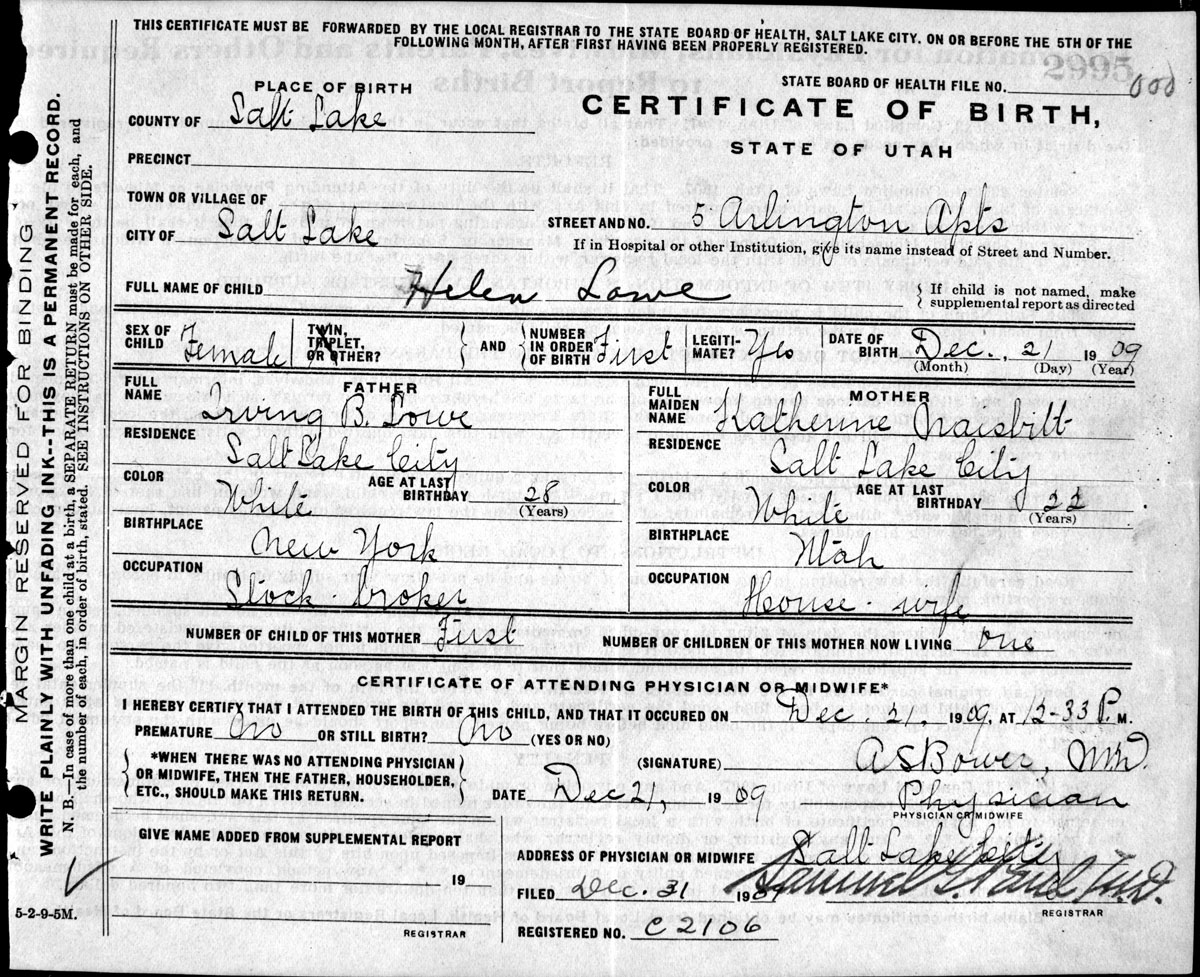 THIS CERTIFICATE MUST BE FORWARDED BY THE LOCAL REGISTRAR TO THE STATE BOARD OF HEALTH, SALT LAKE CITY, ON OR BEFORE THE 5TH OF THE
FOLLOWING MONTH, AFTER FIRST HAVING BEEN PROPERLY REGISTERED.
STATE BOARD OF HEALTH FILE NO.
PLACE OF BIRTH
CERTIFICATE OF BIRTH,
STATE OF UTAH
COUNTY OF Salt Lake
PRECINCT
TOWN OR VILLAGE OF
CITY OF Salt Lake
STREET AND NO. 5 Arlington Apts
If in Hospital or other Institution, give its name instead of Street and Number.
FULL NAME OF CHILD Helen Lowe
{ If child is not named, make
supplemental report as directed
SEX OF CHILD Female TWIN, TRIPLET, OR OTHER? } AND { NUMBER IN ORDER OF BIRTH First LEGITIMATE? Yes DATE OF BIRTH Dec., 21 1909
(Month) (Day) (Year)
FATHER
FULL NAME Irving B. Lowe
RESIDENCE Salt Lake City
COLOR White AGE AT LAST BIRTHDAY 28
(Years)
BIRTHPLACE New York
OCCUPATION Stock broker
MOTHER
FULL MAIDEN NAME Katherine Naisbitt
RESIDENCE Salt Lake City
COLOR White AGE AT LAST BIRTHDAY 22
(Years)
BIRTHPLACE Utah
OCCUPATION House-wife
NUMBER OF CHILD OF THIS MOTHER First NUMBER OF CHILDREN OF THIS MOTHER NOW LIVING one
CERTIFICATE OF ATTENDING PHYSICIAN OR MIDWIFE*
I HEREBY CERTIFY THAT I ATTENDED THE BIRTH OF THIS CHILD, AND THAT IT OCCURED ON Dec. 21. 1909, AT 12-33 P. M.
PREMATURE No OR STILL BIRTH? No (YES OR NO)
{ *WHEN THERE WAS NO ATTENDING PHYSICIAN
OR MIDWIFE, THEN THE FATHER, HOUSEHOLDER,
ETC., SHOULD MAKE THIS RETURN. }
(SIGNATURE) A S Bower, MD.
DATE Dec 21, 1909 Physician
PHYSICIAN OR MIDWIFE
GIVE NAME ADDED FROM SUPPLEMENTAL REPORT
19
REGISTRAR
ADDRESS OF PHYSICIAN OR MIDWIFE Salt Lake City
FILED Dec. 31 1909 Samuel G. Paul M.D.
REGISTRAR
REGISTERED NO. C2106
5-2-9-5M.
MARGIN RESERVED FOR BINDING
WRITE PLAINLY WITH UNFADING INK--THIS IS A PERMANENT RECORD.
N. B.—In case of more than one child at a birth, a SEPARATE RETURN must be made for each, and
the number of each, in order of birth, stated. SEE INSTRUCTIONS ON OTHER SIDE.